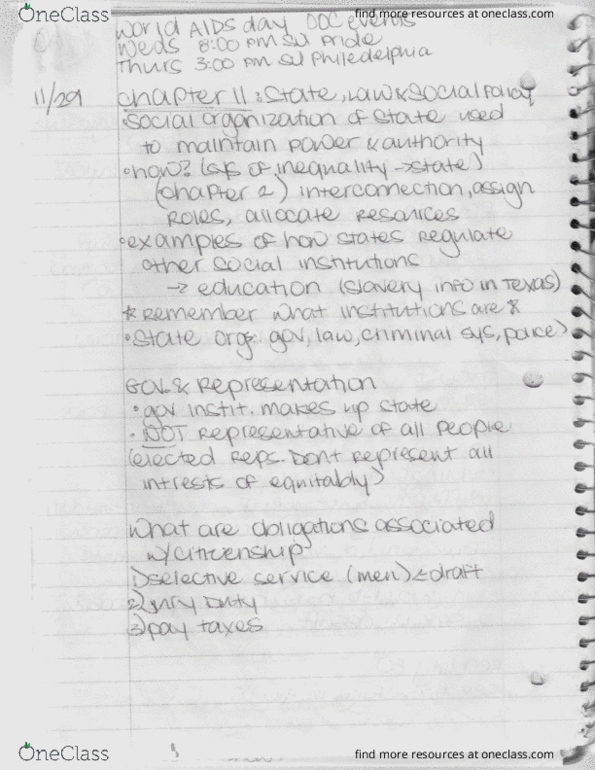 OneClass
find more resources at oneclass.com
World AIDS day OOC events
Weds 8:00 PM SU Pride
Thurs 3:00 PM SU Philadelphia
11/29 chapter 11: State, Law & Social Policy
•Social organization of state used
to maintain power & authority
•how? (sys of inequality → state)
(chapter 2) interconnection, assign
roles, allocate resources
•examples of how states regulate
other social institutions
→ education (slavery info in Texas)
* Remember what institutions are *
•State org: gov, law, criminal sys, police)
Gov. & Representation
•gov instit. makes up state
•NOT representative of all people
(elected reps. Dont represent all
intrests of equitably)
What are obligations associated
w/ citizenship
1) selective service (men) ← draft
2) jury Duty
3) pay taxes
OneClass
find more resources at oneclass.com